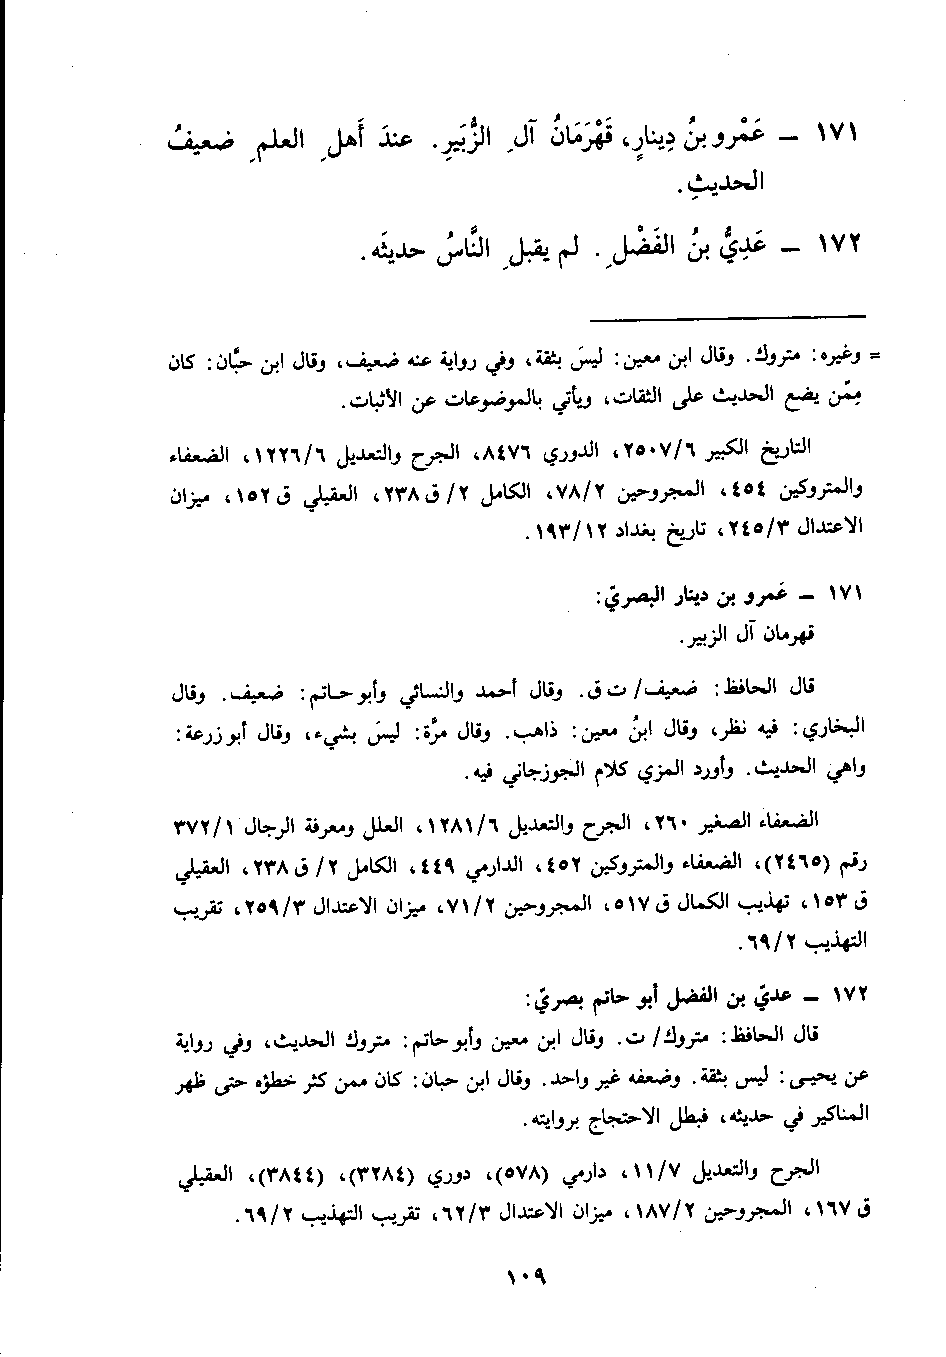 ١٧١ ــ عَمْرو بنُ دِينارٍ، قَهْرَمَانُ آلِ الزُّبَيرِ. عندَ أَهلِ العلمِ ضعيفُ
الحديثِ.
١٧٢ ــ عَدِيُّ بنُ الفَضْلِ. لم يقبلِ النَّاسُ حديثَه.
= وغيره: متروك. وقال ابن معين: ليسَ بثقة، وفي رواية عنه ضعيف، وقال ابن حبَّان: كان
مِمّن يضع الحديث على الثقات، ويأتي بالموضوعات عن الأثبات.
التاريخ الكبير ٢٥٠٧/٦، الدوري ٨٤٧٦، الجرح والتعديل ١٢٢٦/٦، الضعفاء
والمتروكين ٤٥٤، المجروحين ٧٨/٢، الكامل ٢/ق ٢٣٨، العقيلي ق ١٥٢، ميزان
الاعتدال ٢٤٥/٣، تاريخ بغداد ١٩٣/١٢.
١٧١ ــ عَمرو بن دينار البصريّ:
قهرمان آل الزبير.
قال الحافظ: ضعيف/ ت ق. وقال أحمد والنسائي وأبو حاتم: ضعيف. وقال
البخاري: فيه نظر، وقال ابنُ معين: ذاهب. وقال مرَّة: ليسَ بشيء، وقال أبو زرعة:
واهي الحديث. وأورد المزي كلام الجوزجاني فيه.
الضعفاء الصغير ٢٦٠، الجرح والتعديل ١٢٨١/٦، العلل ومعرفة الرجال ٣٧٢/١
رقم (٢٤٦٥)، الضعفاء والمتروكين ٤٥٢، الدارمي ٤٤٩، الكامل ٢/ق ٢٣٨، العقيلي
ق ١٥٣، تهذيب الكمال ق ٥١٧، المجروحين ٧١/٢، ميزان الاعتدال ٢٥٩/٣، تقريب
التهذيب ٦٩/٢.
١٧٢ ــ عديّ بن الفضل أبو حاتم بصريّ:
قال الحافظ: متروك/ ت. وقال ابن معين وأبو حاتم: متروك الحديث، وفي رواية
عن يحيـى: ليس بثقة. وضعفه غير واحد. وقال ابن حبان: كان ممن كثر خطؤه حتى ظهر
المناكير في حديثه، فبطل الاحتجاج بروايته.
الجرح والتعديل ١١/٧، دارمي (٥٧٨)، دوري (٣٢٨٤)، (٣٨٤٤)، العقيلي
ق ١٦٧، المجروحين ١٨٧/٢، ميزان الاعتدال ٦٢/٣، تقريب التهذيب ٦٩/٢.
١٠٩